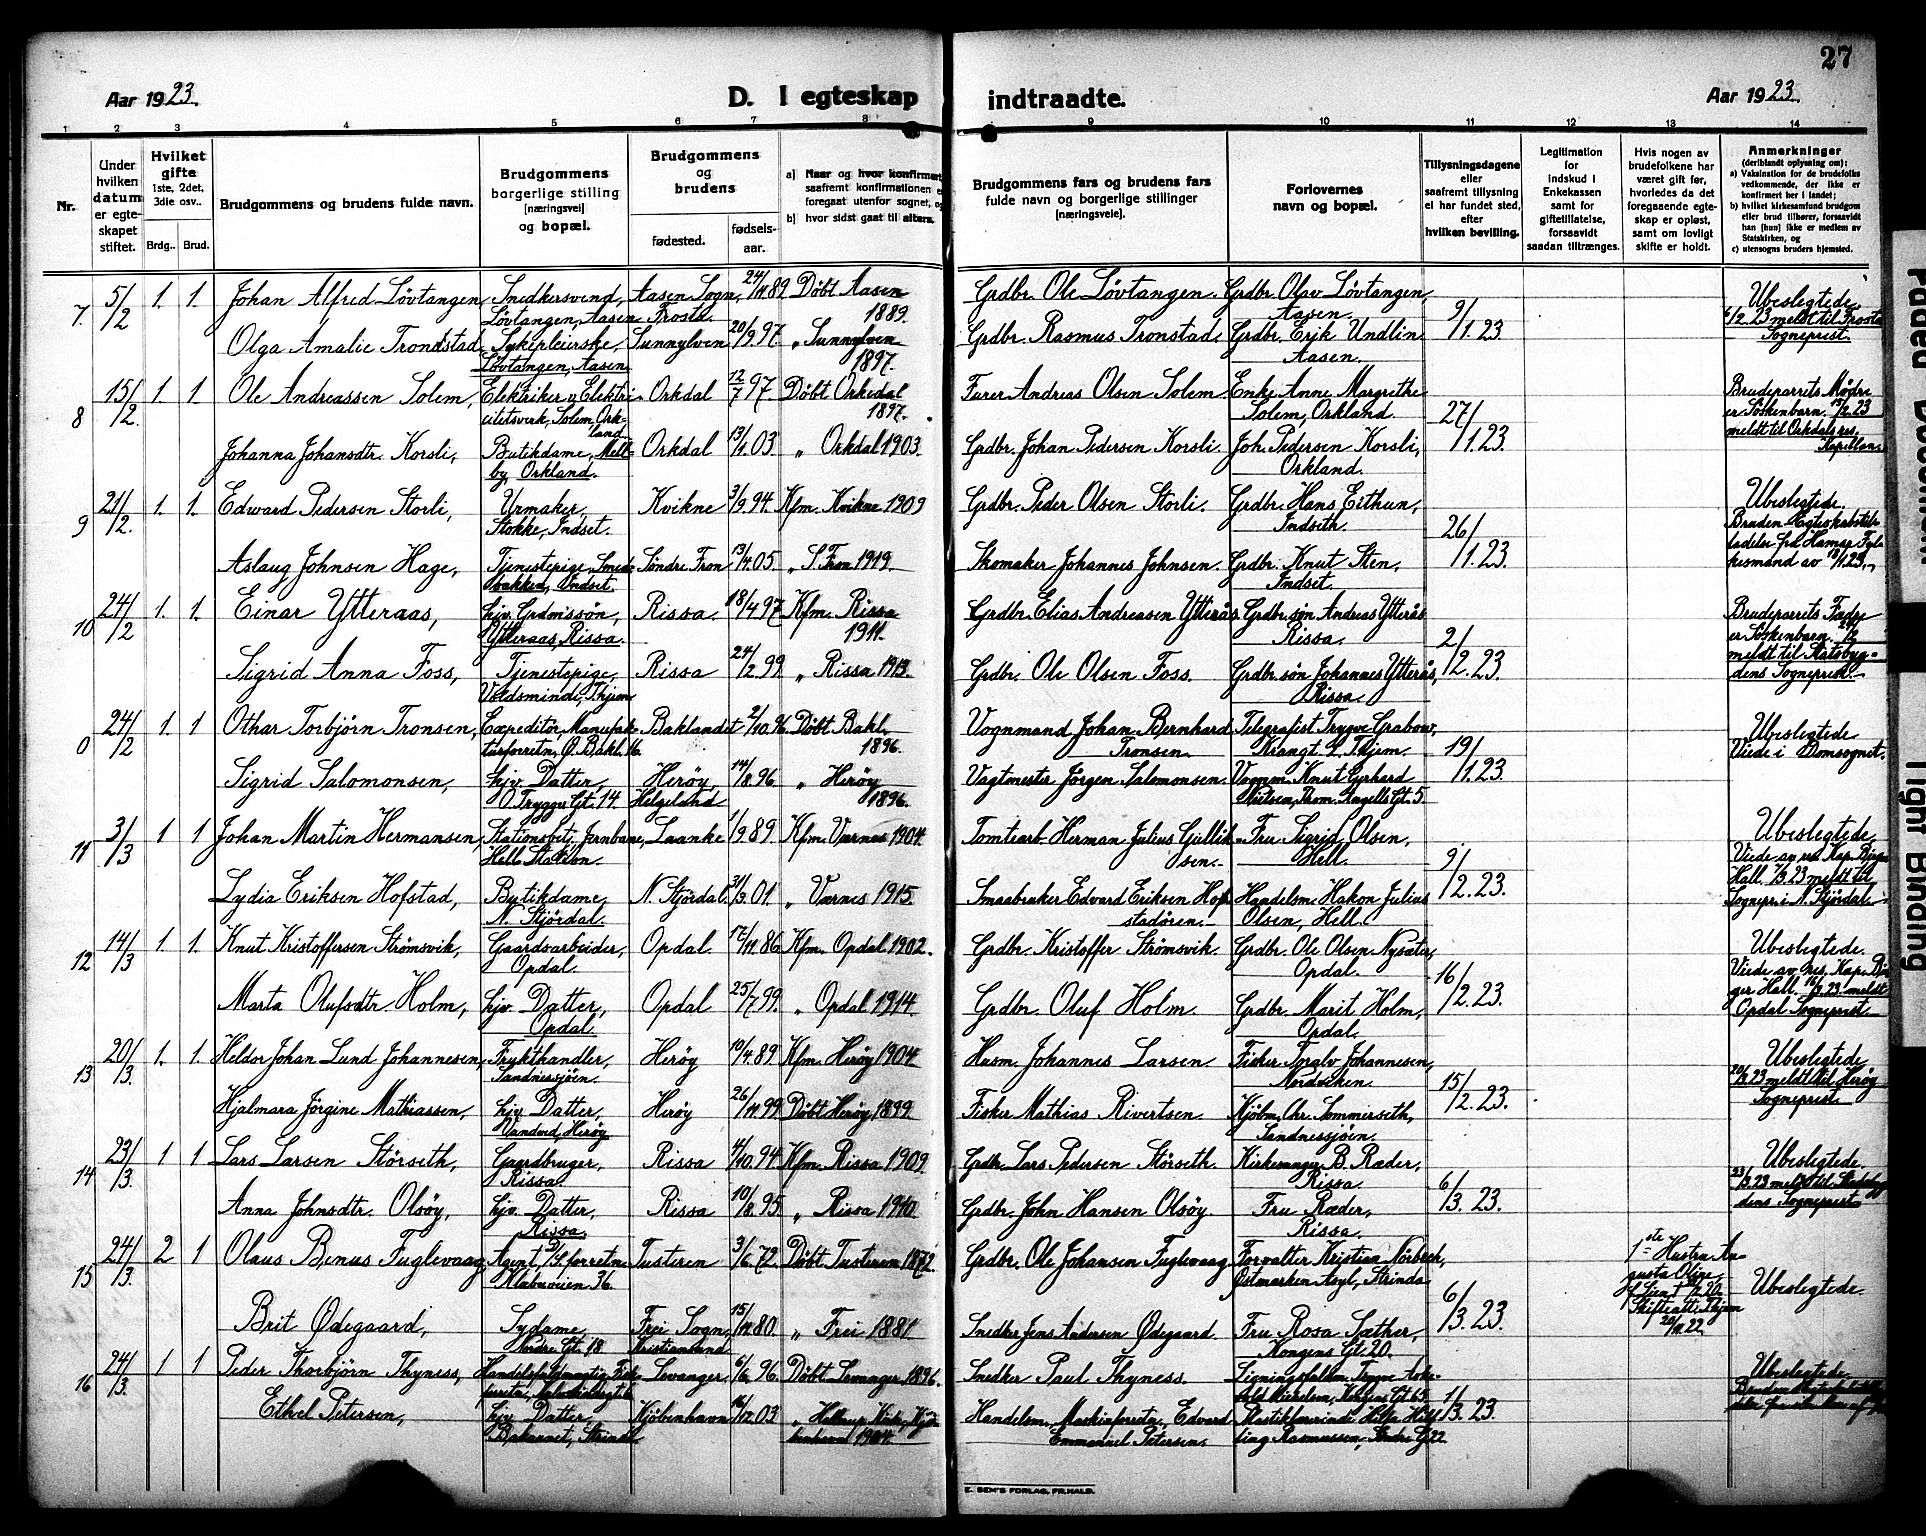 27
Aar 1923.
D. I egteskap indtraadte.
Aar 1923.
1 2 3 4 5 6 7 8 9 10 11 12 13 14
Nr.
Under hvilken datum er egteskapet stiftet.
Hvilket gifte 1ste, 2det, 3die osv..
Brdg.. Brud.
Brudgommens og brudens fulde navn.
Brudgommens borgerlige stilling (næringsvei) og bopæl.
Brudgommens og brudens
fødested. fødselsaar.
a) Naar og hvor konfirmert, saafremt konfirmationen e foregaat utenfor sognet, og
b) hvor sidst gaat til alters.
Brudgommens fars og brudens fars fulde navn og borgerlige stillinger (næringsveie).
Forlovernes navn og bopæl.
Tillysningsdagene eller saafremt tillysning ei har fundet sted, efter hvilken bevilling.
Legitimation for indskud i Enkekassen samt for giftetillatelse, forsaavidt saadan tiltrænges.
Hvis nogen av brudefolkene har været gift før, hvorledes da det foregaaende egteskap er opløst, samt om lovligt skifte er holdt.
Anmerkninger (deriblandt oplysning om): a) Vaksination for de brudefolks vedkommende, der ikke er konfirmert her i landet; b) hvilket kirkesamfund brudgom eller brud tilhører, forsaavidt han (hun) ikke er medlem av Statskirken, og c) utensogns bruders hjemsted.
7. 5/2 1. 1. Johan Alfred Lövtangen, Snedkersvend, Lövtangen, Aasen Aasen Sogn, Frosta. 24/11 89 Döbt Aasen 1889. Grdbr. Ole Lövtangen. Grdbr. Olav Lövtangen, Aasen. 9/1.23. Ubeslegtede. 6/2.23 meldt til Frosta Sogneprest.
Olga Amalie Trondstad, Sykepleierske, Lövtangen, Aasen Sunnylven 20/9.97. " Sunnylven 1897. Grdbr. Rasmus Tronstad, Grdbr. Erik Undlin Aasen.
8 15/2. 1 1 Ole Andreassen Solem, Elektriker v. Elektricitetsverk, Solem, Orkland Orkdal 12/7 97 Döbt Orkedal 1897. Furer Andreas Olsen Solem Enke Anne Margrethe Solem, Orkland 27/1.23. Brudeparrets Mødre er Söskenbarn. 15/2.23 meldt til Orkdals res. Kapellan.
Johanna Johansdtr. Korsli, Butikdame, Melby, Orkland. Orkdal 13/1 03 " Orkdal 1903. Grdbr. Johan Pedersen Korsli. Joh. Pedersen Korsli, Orkland.
9 21/2. 1. 1. Edward Pedersen Storli, Urmaker, Stokke, Indset. Kvikne 3/9.94. Kfm. Kvikne 1909 Grdbr. Peder Olsen Storli. Grdbr. Hans Eithun, Indseth. 26/1.23. Ubeslegtede.
Aslaug Johnsen Hage, Tjenestepige, Smedbakken, Indset. Söndre Fron 13/4.05. " S. Fron 1919. Skomaker Johannes Johnsen. Grdbr. Knut Sten, Indset.
10 24/2 1. 1. Einar Ytteraas, hjv. Grdmssön, Ytteraas, Rissa. Rissa. 18/4 97 Kfm. Rissa 1911. Grdbr. Elias Andreasen Ytterås Grdbr. sön Andreas Ytterås Rissa. 2/2.23. Brudeparrets Fædre er Söskenbarn. 24/2 meldt til Statsbygdens Sogneprest.
Sigrid Anna Foss, Tjenestepige, Voldsminde, Thjem Rissa 24/2.99. " Rissa 1913. Grdbr. Ole Olsen Foss. Grdbr. sön Johannes Ytterås, Rissa.
0 24/2 1. 1 Othar Torbjörn Tronsen, Expeditör, Manufakturforretn, Ö. Bakl. 16 Baklandet 2/10.96. Döbt Bakl. 1896. Vognmand Johan Bernhard Tronsen. Telegrafist Trygve Grabow, Krangt. 2. Thjem. 19/1.23. Ubeslegtede Viede i Domsognet.
Sigrid Salomonsen, hjv. Datter, O. Tryggv. Gt. 14. Heröy, Helgeland 14/8.96 " Heröy 1896. Vagtmester Jörgen Salomonsen. Vognm. Knut Gerhard Nielsen, Thom. Angells Gt. 5
11 3/3 1 1 Johan Martin Hermansen, Stationsbetj. Jernbane, Hell Station. Laanke 1/9 89 Kfm. Værnes 1904. Tomtearb. Herman Julius Gulliksen. Fru Sigrid Olsen, Hell. 9/2.23. Ubeslegtede
Lydia Eriksen Hofstad, Butikdame, N. Stjördal. N. Stjördal. 31/3.01. " Værnes 1915. Smaabruker Edvard Eriksen Hofstadören. Handelsm. Hakon Julius Olsen, Hell.
12 14/3 1. 1. Knut Kristoffersen Strömsvik, Gaardsarbeider, Opdal. Opdal. 17/11.86 Kfm. Opdal 1902. Grdbr. Kristoffer Strömsvik. Grdbr. Ole Olsen Nysæter, Opdal. 16/2.23. Ubeslegtede.
Marta Olufsdtr. Holm, hjv. Datter, Opdal Opdal 25/7.99. " Opdal 1914. Grdbr. Oluf Holm. Grdbr. Marit Holm, Opdal. Opdal Sogneprest.
13 20/3. 1. 1. Heldor Johan Lund Johannesen, Frykthandler, Sandnessjöen. Heröy 10/4.89 Kfm. Heröy 1904 Husm. Johannes Larsen. Fisker Ingalv Johannesen, Nordviken. 15/2.23. Ubeslegtede 20/3.23 meldt til Heröy Sogneprest.
Hjalmara Jörgine Mathiassen, hjv. Datter, Vandved, Heröy Heröy 26/11.99. Döbt Heröy 1899 Fisker Mathias Rivertsen. Kjöbm. Chr. Sommerseth, Sandnessjöen.
14 23/3. 1 1 Lars Larsen Störseth, Gaardbruger, Rissa. Rissa 4/10.94 Kfm. Rissa 1909. Grdbr. Lars Pedersen Störseth. Kirkesanger B. Ræder, Rissa. 6/3.23. Ubeslegtede.
Anna Johnsdtr. Olsöy, hjv. Datter, Rissa. Rissa 10/8.95 " Rissa 1910. Grdbr. John Hansen Olsöy Fru Ræder, Rissa.
15 24/3. 2 1 Olaus Benus Fuglevaag, Agent, Klabuveien 36. Tusteren 3/6.72. Döbt Tusteren 1872. Grdbr. Ole Johansen Fuglevaag Forvalter Kristian Nörbech, Østmarken Asyl, Strinda 6/3.23. 1ste Hustru Augusta Oline Ubeslegtede.
Brit Ødegaard, Sydame, Nordre Gt. 18 Frei Sogn, Kristiansund 15/11.80. " Frei 1881 Snedker Jens Andersen Ødegaard. Fru Rosa Sæther, Kongens Gt. 20.
16 24/3. 1 1 Peder Thorbjörn Thyness, Levanger 6/6.96. Döbt Levanger 1896. Snedker Paul Thyness. 1/3.23. Ubeslegtede
Ethel Petersen, hjv. Datter, Bakaunet, Strinda Kjöbenhavn 16/12.03 " Hellerup Kirke, Kjöbenhavn 1904. Handelsm. Edvard Emmanuel Petersen.
E. SEM'S FORLAG, FR.HALD.
Paded Document
Tight Binding